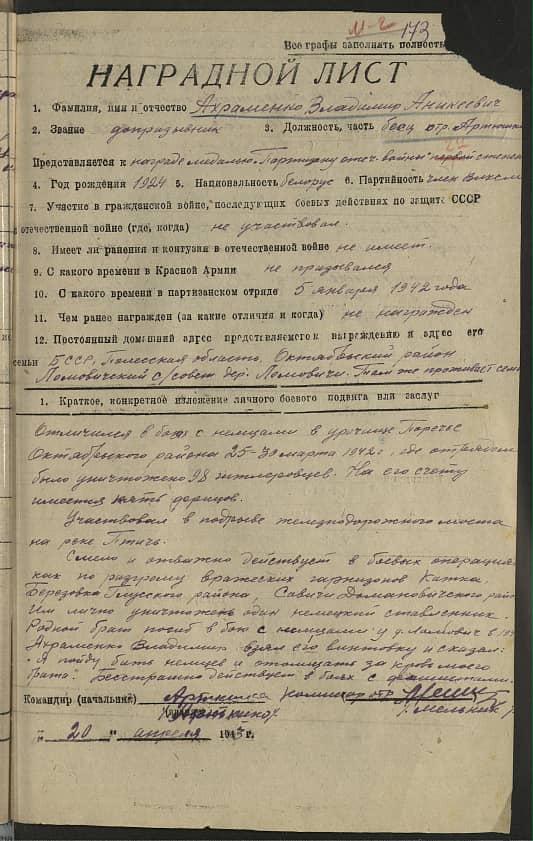 173
Все графы заполнять полность
НАГРАДНОЙ ЛИСТ
1. Фамилия, имя и отчество Ахраменко Владимир Аникеевич
2. Звание допризывник 3. Должность, часть боец отр. Артюшки
Представляется к награде медалью "Партизану отеч. войны" первой степени
4. Год рождения 1924 5. Национальность белорус 6. Партийность член ВЛКСМ
7. Участие в гражданской войне, последующих боевых действиях по защите СССР
в отечественной войне (где, когда) не участвовал.
8. Имеет ли ранения и контузия в отечественной войне не имеет.
9. С какого времени в Красной Армии не призывался
10. С какого времени в партизанском отряде 5 января 1942 года
11. Чем ранее награжден (за какие отличия и когда) не награжден
12. Постоянный домашний адрес представляемого к награждению и адрес его
семьи БССР, Полесская область, Октябрьский район
Ломовичский с/совет дер. Ломовичи. Там же проживает семья
1. Краткое, конкретное изложение личного боевого подвига или заслуг
Отличился в бою с немцами в урочище Поречье
Октябрьского района 25-30 марта 1942 г. где отрядом
было уничтожено 98 гитлеровцев. На его счету
имеется пять фрицов.
Участвовал в подрыве железнодорожного моста
на реке Птичь.
Смело и отважно действует в боевых операция-
ках по разгрому вражеских гарнизонов Катка,
Березовка Глусского района, Савичи Домановичского рай
Им лично уничтожен один немецкий ставленник.
Родной брат погиб в бою с немцами у д. Ломович в 194
Ахраменко Владимир взял его винтовку и сказал:
"Я пойду бить немцев и отомщать за кровь моего
брата". Бесстрашно действует в боях с фашистами.
Командир (начальник) Артюшка комиссар отр.
/Мельник/
„ 20 " апреля 1943 г.